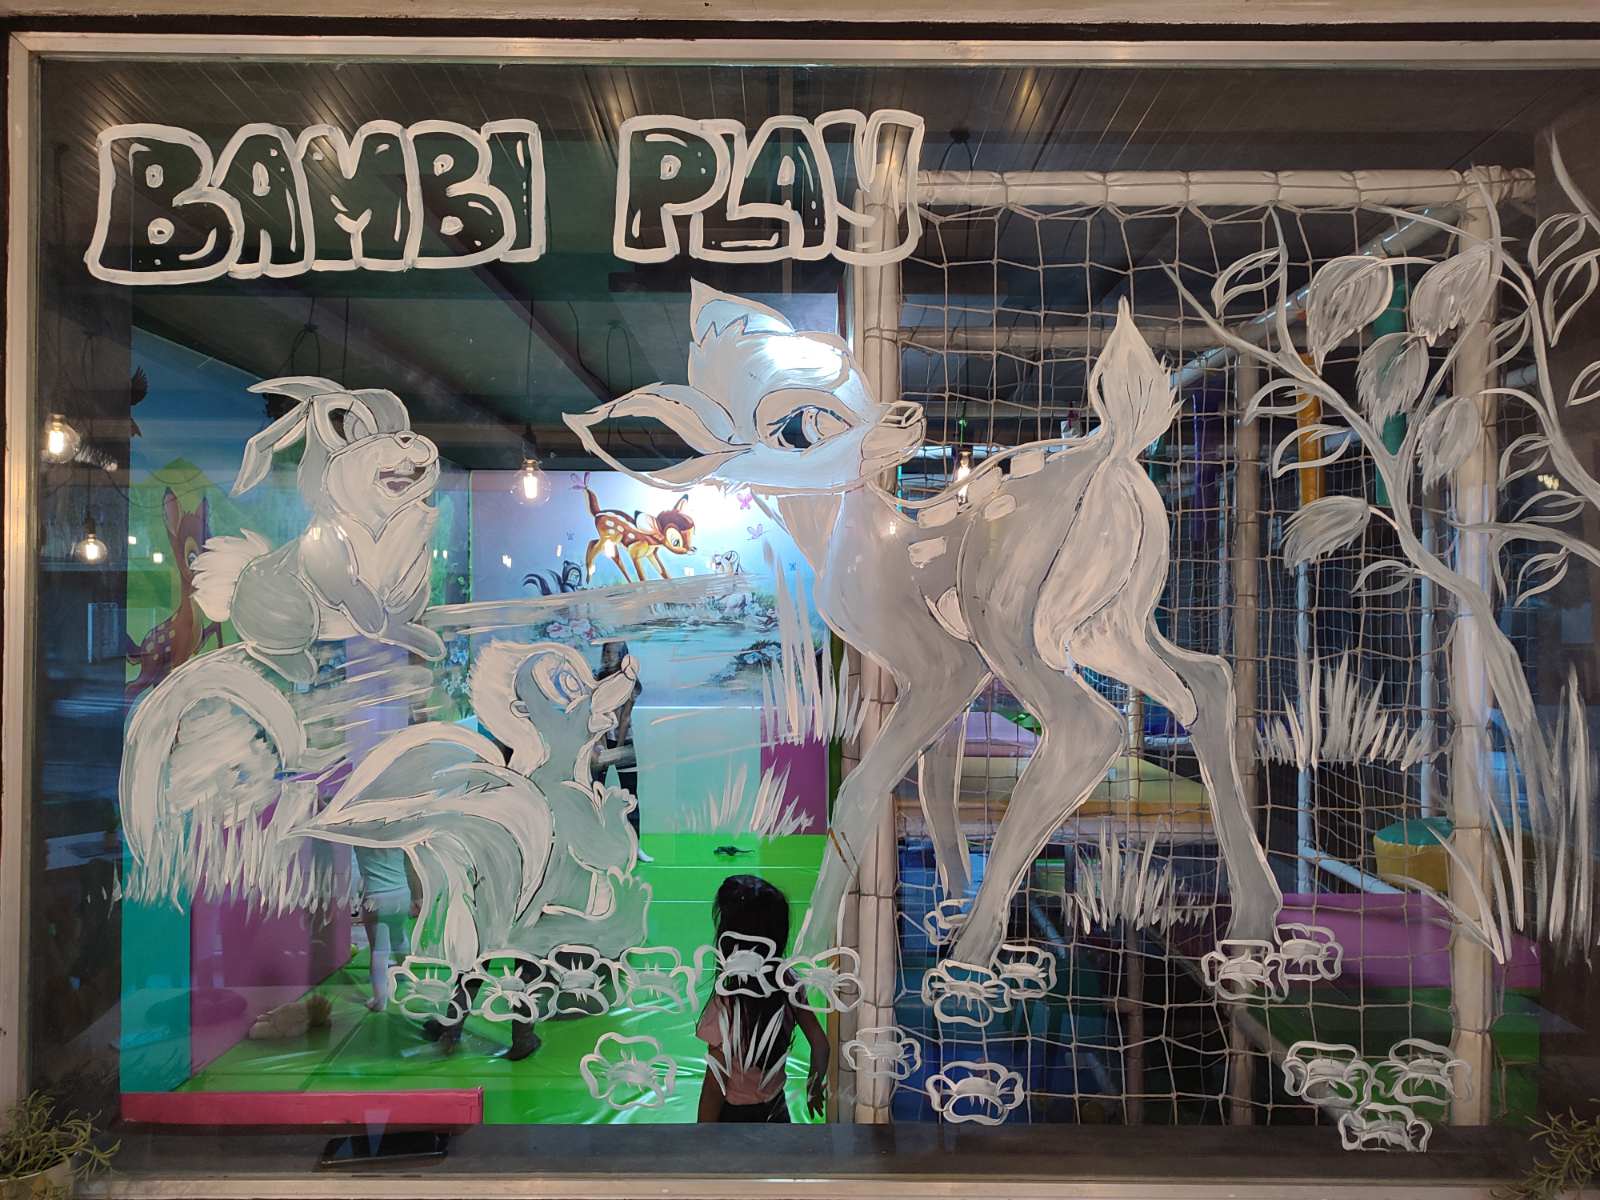 BAMBI PLAY